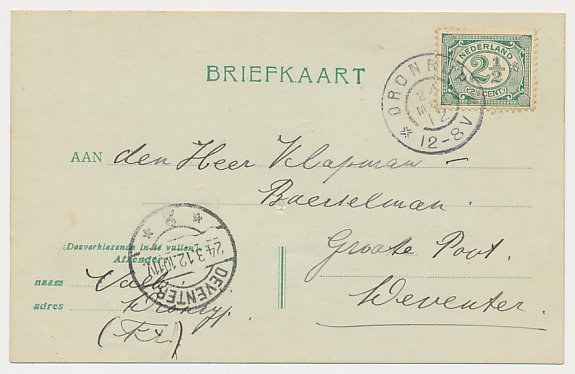 BRIEFKAART
NEDERLAND
2½
(2½ CENT)
DRONRYP
24
12
12-8V
AAN den Heer Klapman -
Boerselman.
Groote Poot.
Deventer.
(Desverkiezende in te vullen)
Afzender:
naam
adres Dronryp.
(Fr.)
DEVENTER
24.3.12.
8